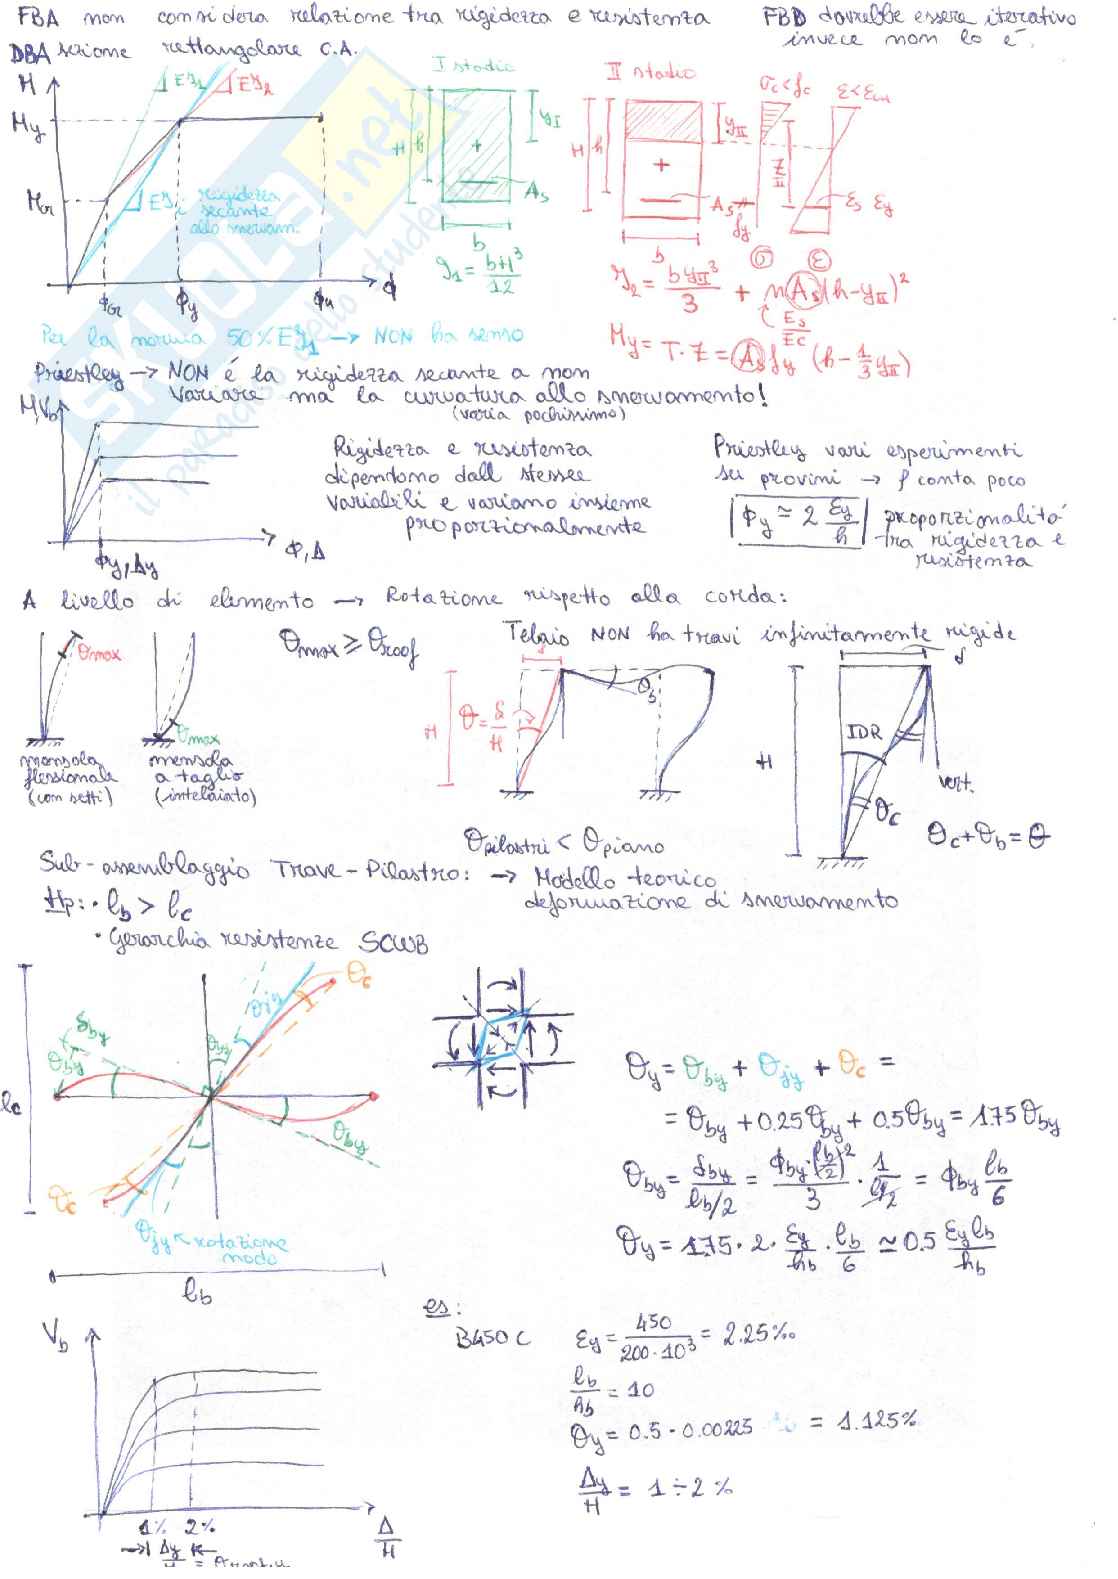 FBA non considera relazione tra rigidezza e resistenza
FBD dovrebbe essere iterativo
invece non lo è.
DBA sezione rettangolare C.A.
M
EI1
My
Mcr
rigidezza
secante
allo snervam.
ϕcr
ϕy
ϕu
ϕ
I stadio
H
h
yI
As
b
II stadio
σc<fc
ε<εcu
H
h
yII
As
fy
εs εy
b
σ
ε
nAs(h-yII)²
Es
Ec
My = T·Z = As fy (h - 1/3 yII)
Per la norma 50% EI1 → NON ha senso
Priestley → NON è la rigidezza secante a non
variare ma la curvatura allo snervamento!
(varia pochissimo)
M,Vb
ϕ,Δ
ϕy,Δy
Rigidezza e resistenza
dipendono dall stessee
variabili e variano insieme
proporzionalmente
Priestley vari esperimenti
su provini → ρ conta poco
ϕy ≃ 2 εy/h
proporzionalità
tra rigidezza e
resistenza
A livello di elemento → Rotazione rispetto alla corda:
θmax
mensola
flessionale
(con setti)
θmax
mensola
a taglio
(intelaiato)
θmax ≥ θroof
Telaio NON ha travi infinitamente rigide
H
θ = δ/H
θb
θpilastri < θpiano
δ
H
IDR
θc
vert.
θc + θb = θ
Sub-assemblaggio Trave-Pilastro: → Modello teorico
deformazione di snervamento
Hp: • lb > lc
• Gerarchia resistenze SCWB
lc
δby
θby
θby
θjy
θc
θby
θc
θjy ← rotazione
nodo
lb
θy = θby + θjy + θc =
= θby + 0.25θby + 0.5θby = 1.75θby
θby = δby/(lb/2) = ϕby·(lb/2)²/3 · 1/(lb/2) = ϕby lb/6
θy = 1.75 · 2 · εy/hb · lb/6 ≃ 0.5 εy lb/hb
es:
B450C
εy = 450/(200·10³) = 2.25‰
lb/hb = 10
θy = 0.5 · 0.00225
= 1.125%
Δy/H = 1÷2%
Vb
1% 2%
Δ/H
Δy